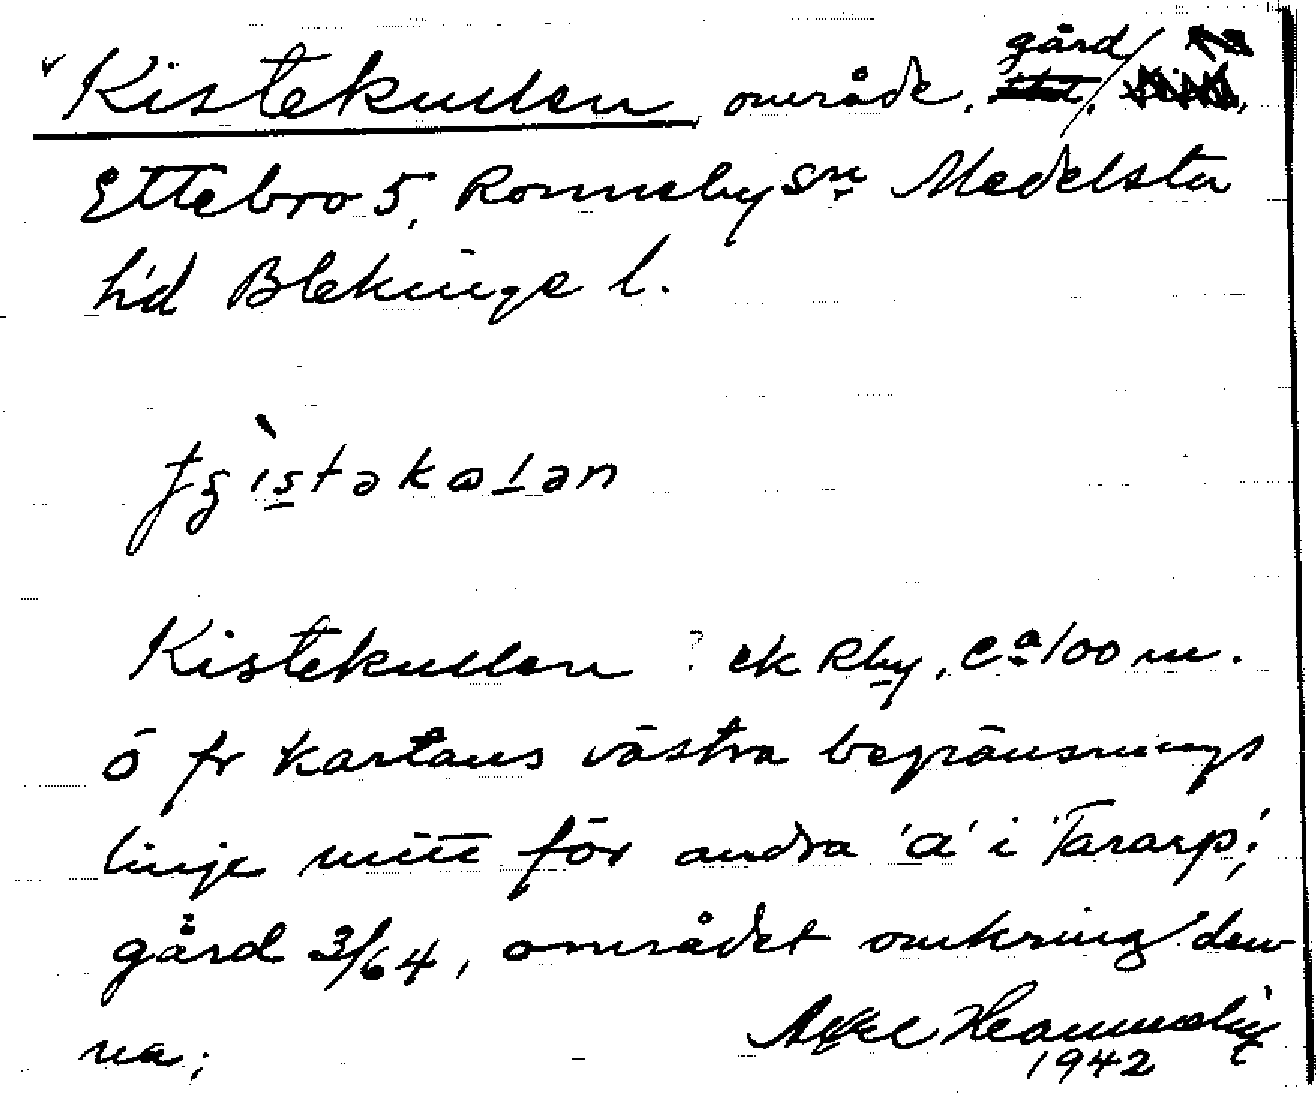 Kistekullen område, gård/
Ettebro 5, Ronneby sn Medelsta
h'd Blekinge l.
Kistekullen ? ek Rby, ca 100 m.
ö fr kartans västra begränsnings
linje mitt för andra 'a' i 'Tararp';
gård 3/64, området omkring den
na;
Axel
1942